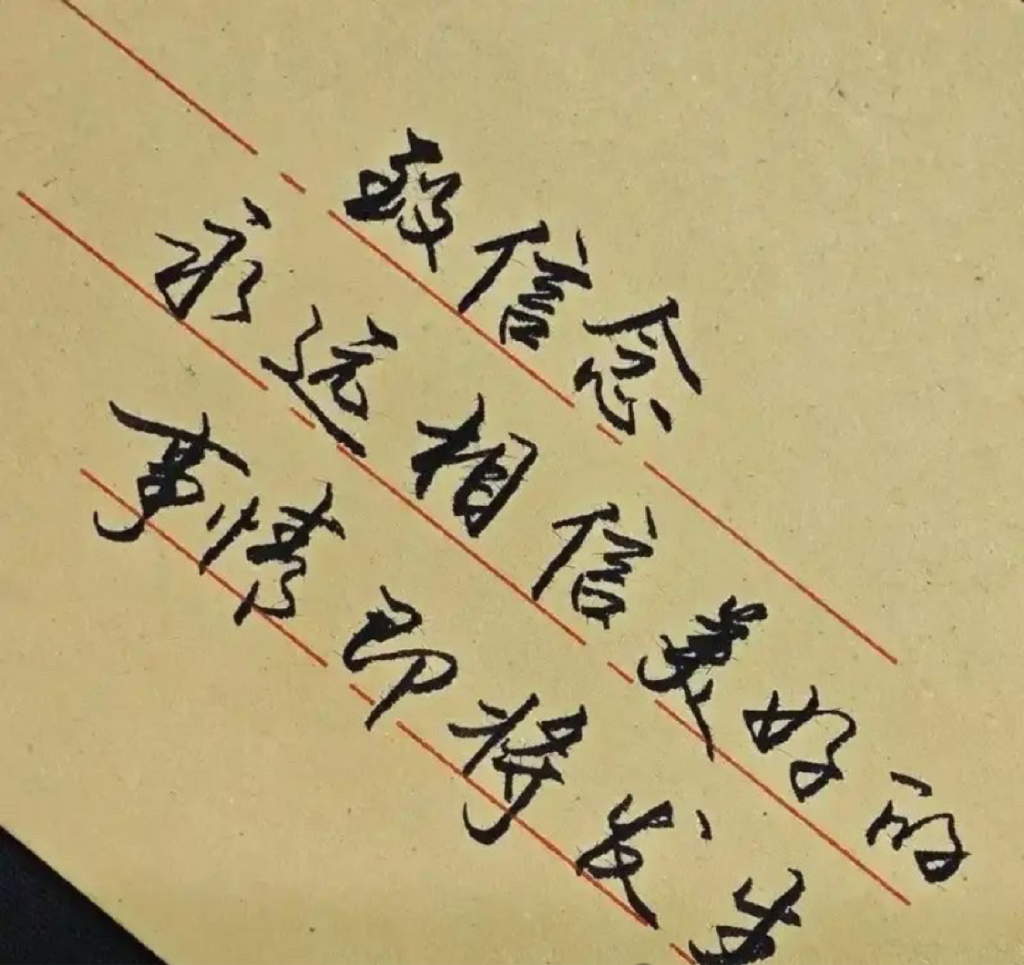 致信念
永远相信美好的
事情即将发生